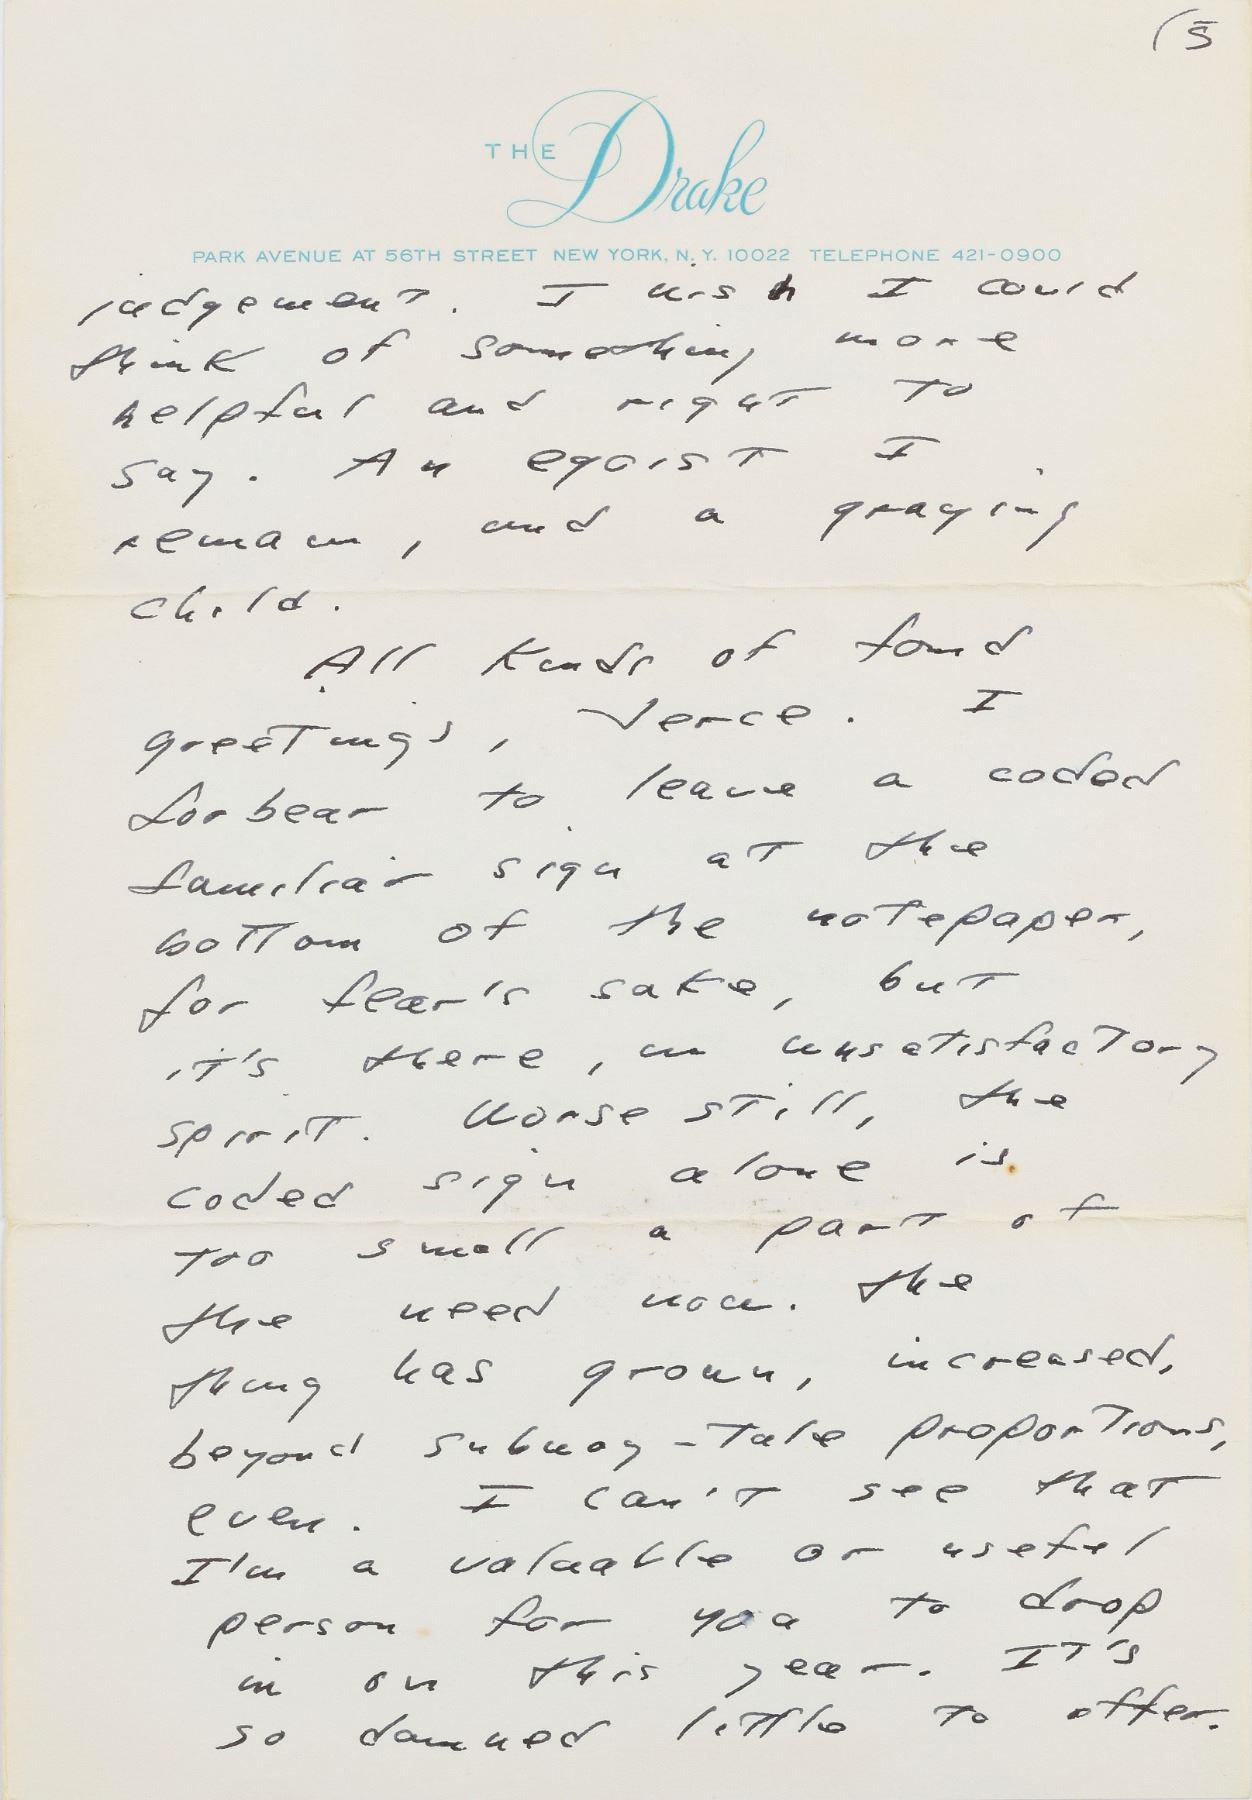 (5
THE Drake
PARK AVENUE AT 56TH STREET NEW YORK, N.Y. 10022 TELEPHONE 421-0900
judgement. I wish I could
think of something more
helpful and right to
say. An egoist I
remain, and a graying
child.
All kinds of fond
greetings, Verce. I
forbear to leave a coded
familiar sign at the
bottom of the notepaper,
for fear's sake, but
it's there, in unsatisfactory
spirit. Worse still, the
coded sign alone is
too small a part of
the need now. The
thing has grown, increased,
beyond subway-tale proportions,
even. I can't see that
I'm a valuable or useful
person for you to drop
in on this year. It's
so damned little to offer.